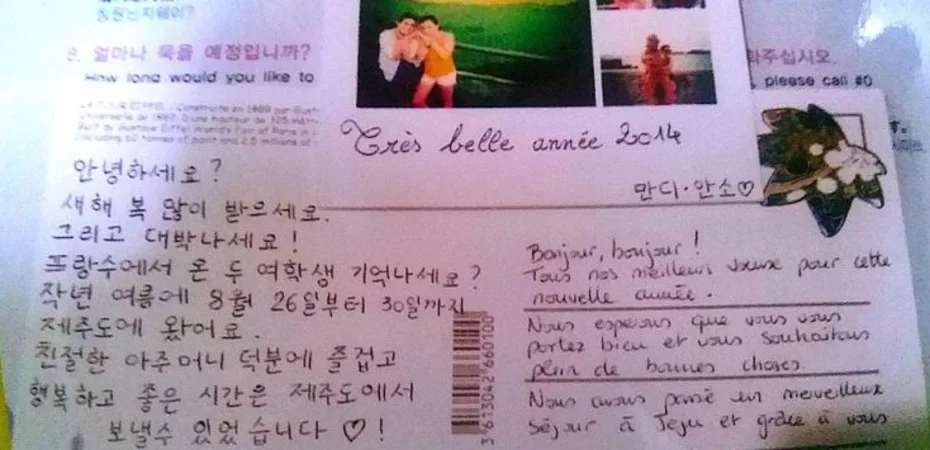 8. 얼마나 묵을 예정입니까?
How long would you like to
해주십시오.
, please call #0
LA TOUR EIFFEL, Construite en 1889 par Gust
Très belle année 2014
만디·안소♡
안녕하세요?
새해 복 많이 받으세요.
그리고 대박나세요!
프랑수에서 온 두 여학생 기억나세요?
작년 여름에 8월 26일부터 30일까지
제주도에 왔어요.
친절한 아주머니 덕분에 즐겁고
행복하고 좋은 시간은 제주도에서
보낼수 있었습니다 ♡!
3 613042 660100
Bonjour, bonjour!
Tous nos meilleurs voeux pour cette
nouvelle année.
Nous esperons que vous vous
portez bien et vous souhaitons
plein de bonnes choses.
Nous avons passé un merveilleux
séjour à Jeju et grâce à vous